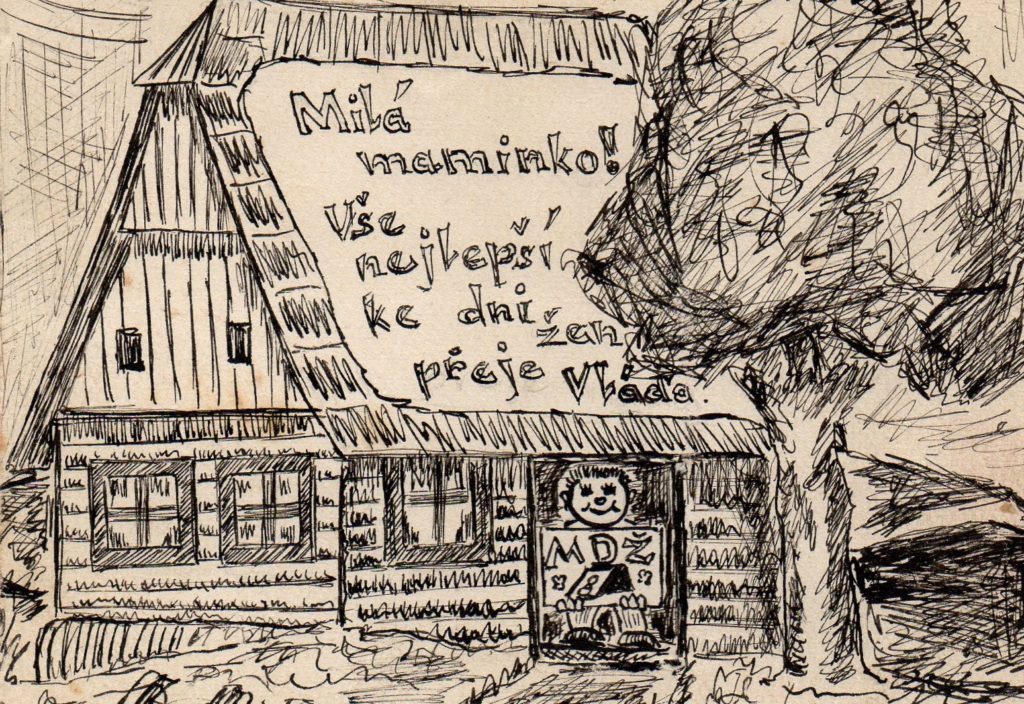 Milá
maminko!
Vše
nejlepší
ke dni
žen
přeje Vláďa.
MDŽ